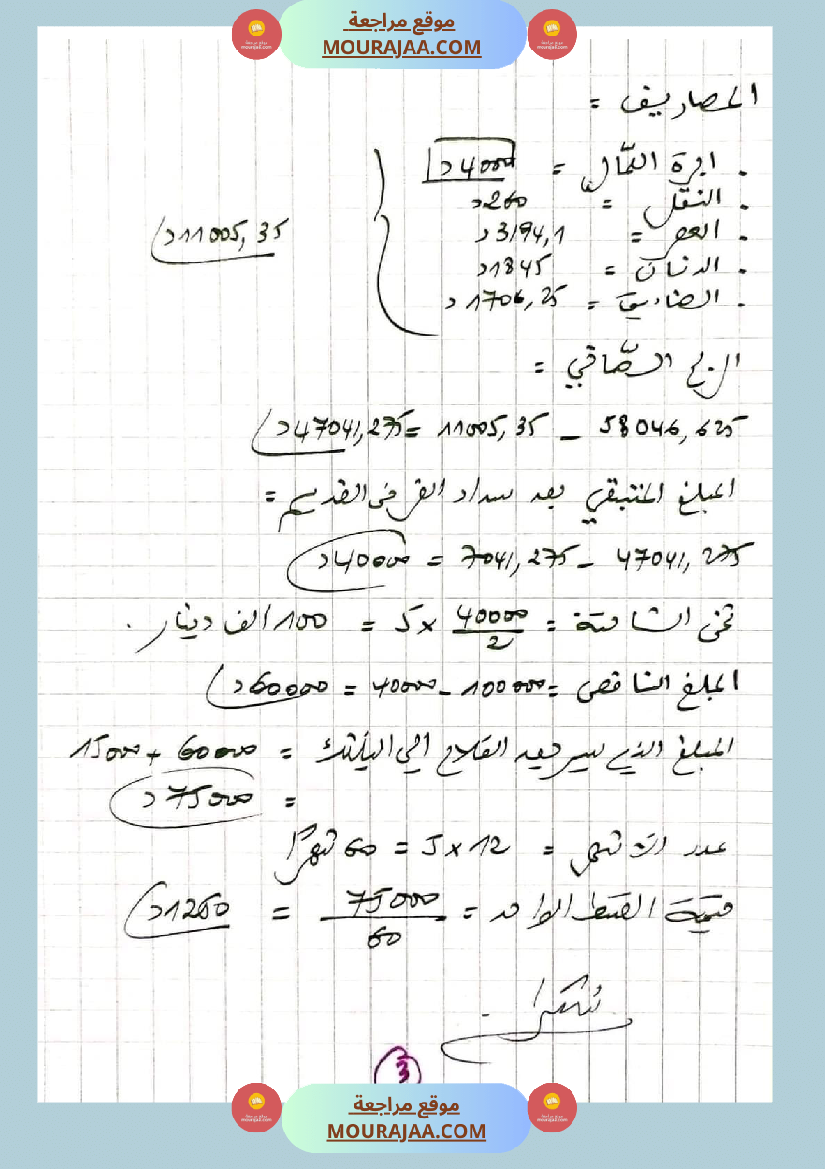 موقع مراجعة
MOURAJAA.COM
المصاريف =
. اجرة العمال = 4000د
. النقل = 260د
. العصر = 3194,1د
. الدنان = 1845د
. الصناديق = 1706,25د
11005,35د
الربح الصّافي =
58046,625 – 11005,35 = 47041,275د
المبلغ المتبقي بعد سداد القرض القديم =
47041,275 – 7041,275 = 40000د
ثمن الشاحنة = 40000/2 × 5 = 100 الف دينار.
المبلغ الناقص = 100000 – 40000 = 60000د
المبلغ الذي سيرجعه الفلاح الى البنك = 60000 + 15000
= 75000د
عدد الاشهر = 12 × 5 = 60 شهرا
قيمة القسط الواحد = 75000/60 = 1250د
شكرا.
3
موقع مراجعة
MOURAJAA.COM